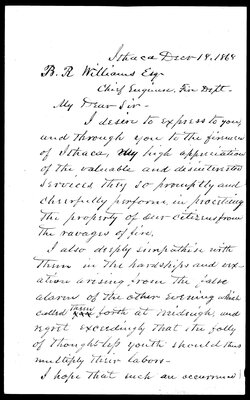 Ithaca Decr 14, 1869
B. R. Williams Esq
Chief Engineer Fire Dept.
My Dear Sir -
I desire to express to you,
and through you to the firemen
of Ithaca, my high appreciation
of the valuable and disinterested
services they so promptly and
cheerfully perform in protecting
the property of our citizens from
the ravages of fire.
I also deeply simpathise with
them in the hardships and vex-
ation arising from the false
alarm of the other evening which
called them forth at midnight, and
regret exceedingly that the folly
of thoughtless youth should thus
multiply their labors -
I hope that such an occurrence